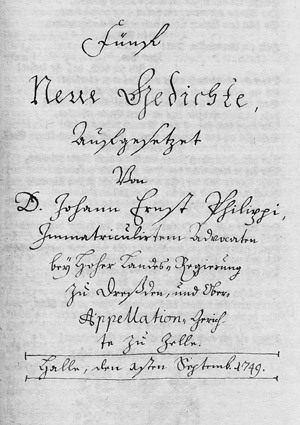 Fünf
Neue Gedichte,
Aufgesetzet
Von
D. Johann Ernst Philippi,
Immatriculirtem Advocaten
bey Hoher Landes-Regierung
zu Dreßden, und Ober-
Appellation-Gerich-
te zu Zelle.
Halle, den 1sten Septemb. 1749.